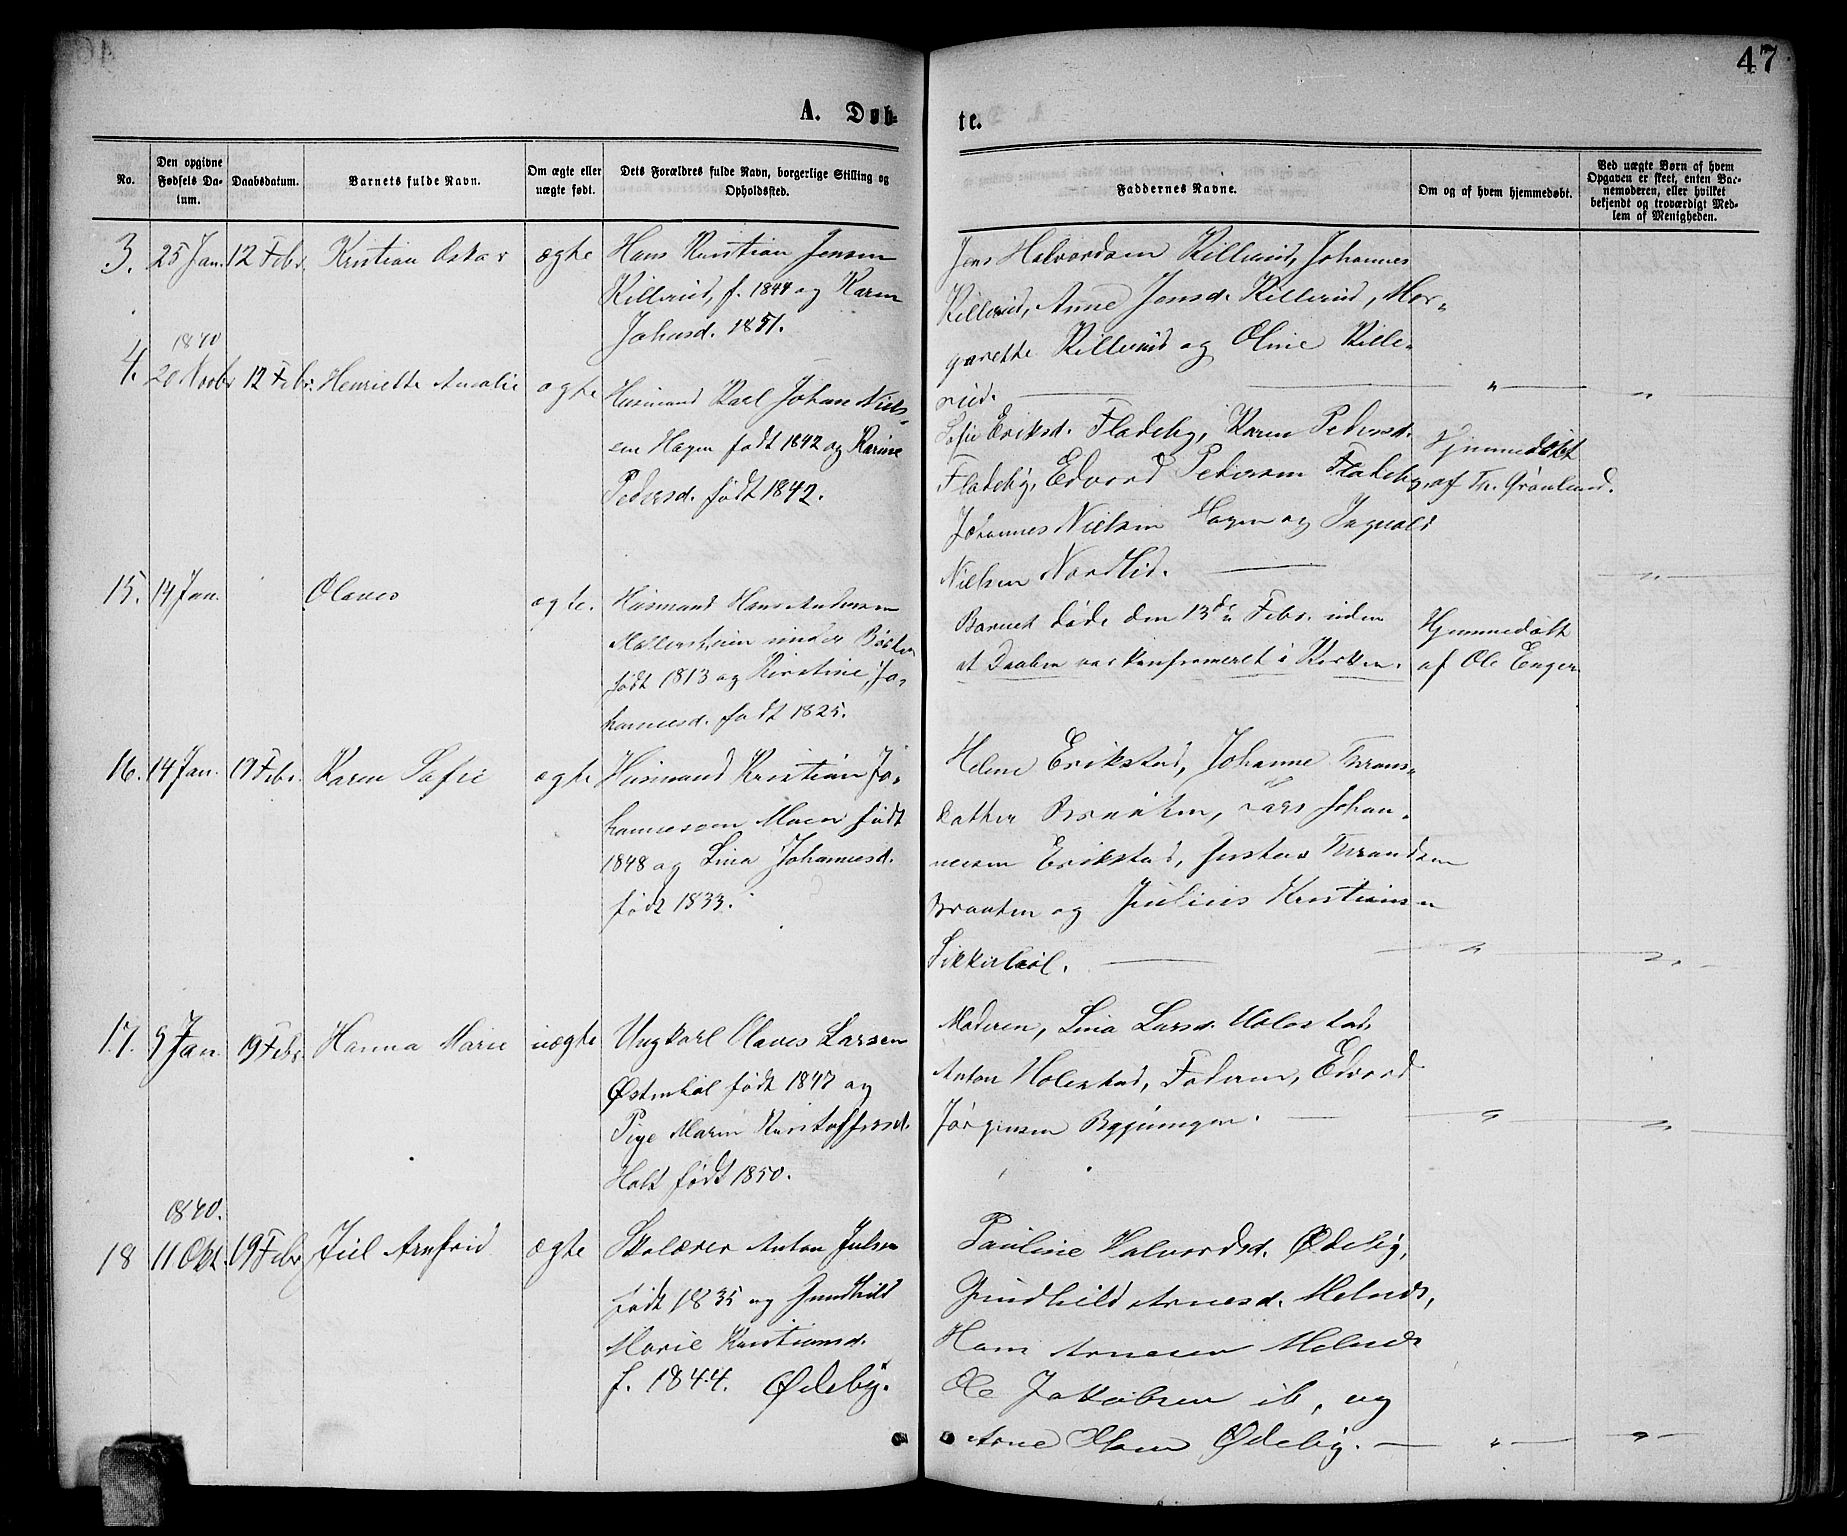 47
A. Døb-
te.
No.
Den opgivne
Fødsels Da-
tum.
Daabsdatum.
Barnets fulde Navn.
Om ægte eller
uægte født.
Dets Forældres fulde Navn, borgerlige Stilling og
Opholdssted.
Faddernes Navne.
Om og af hvem hjemmedøbt.
Ved uægte Børn af hvem
Opgaven er skeet, enten Bar-
nemoderen, eller hvilket
bekjendt og troværdigt Med-
lem af Menigheden.
3.
25 Jan.
12 Febr.
Kristian Oskar
ægte
Hans Kristian Jensen
Killerud, f. 1844 og Karen
Johnsd. 1851.
Jens Halvordsen Killerud, Johannes
Killerud, Anne Jensd. Killerud, Mar-
garette Killerud og Oline Kille-
rud.
4.
1870
20 Novbr
12 Febr.
Henriette Amalie
ægte
Husmand Karl Johan Niels-
sen Hagen født 1842 og Karine
Pedersd. født 1842.
Sofie Eriksd. Fladeby, Karen Pedersd.
Fladeby, Edvard Pedersen Fladeby,
Johannes Nielsen Hagen og Ingvald
Nielsen Nordlid.
Hjemmedøbt
af Th. Grønlund.
15.
14 Jan.
Olaves
ægte.
Husmand Hans Andersen
født 1813 og Kirstine Jo-
hannesd. født 1825.
Barnet døde den 13de Febr. uden
at Daaben var konfirmeret i Kirken.
Hjemmedøbt
af Ole Enger
16.
14 Jan.
19 Febr.
Karen Sofie
ægte
Husmand Kristian Jo-
hannesen Moen født
1848 og Lina Johannesd.
født 1833.
Helene Erikstad, Johanne Thrans-
datter Braaten, Lars Johan-
nesen Erikstad, Gustav Thrandsen
Braaten og Julius Kristiansen
Sikkerbøl.
17.
9 Jan.
19 Febr.
Hanna Marie
uægte
Ungkarl Olaves Larsen
Østenbøl født 1847 og
Pige Maren Kristoffersd.
Holt født 1850.
Moderen, Lina Larsd. Holestad,
Anton Holestad, Faderen, Edvard
Jørgensen Bygningen.
18
1870.
11 Okt.
19 Febr.
Juel Arnfrid
ægte
Skolærer Anton Julsen
født 1835 og Gundhild
Marie Kristiansd.
f. 1844. Ødeby.
Pauline Halvordsd. Ødeby,
Gundhild Arnesd. Melnes,
Hans Arnesen Melnes
Ole Jakobsen ib, og
Arne Olsen Ødeby.